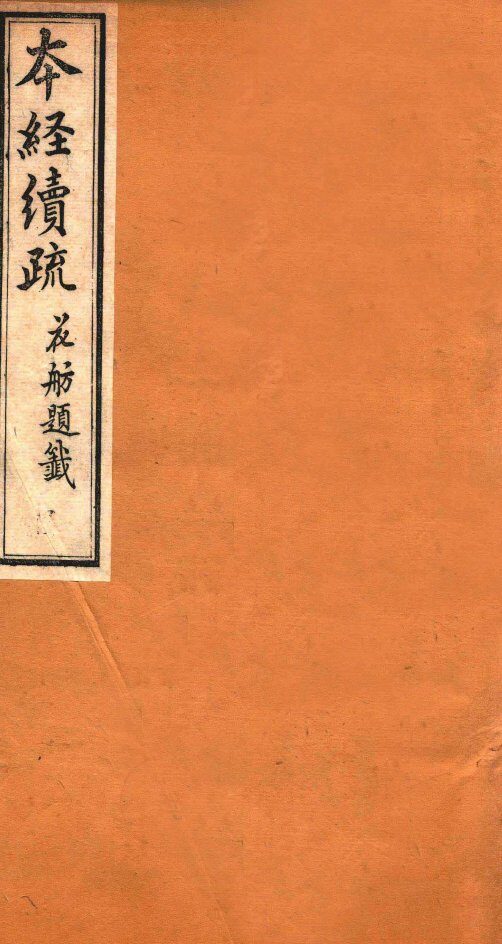 本経續疏
花舫題籤